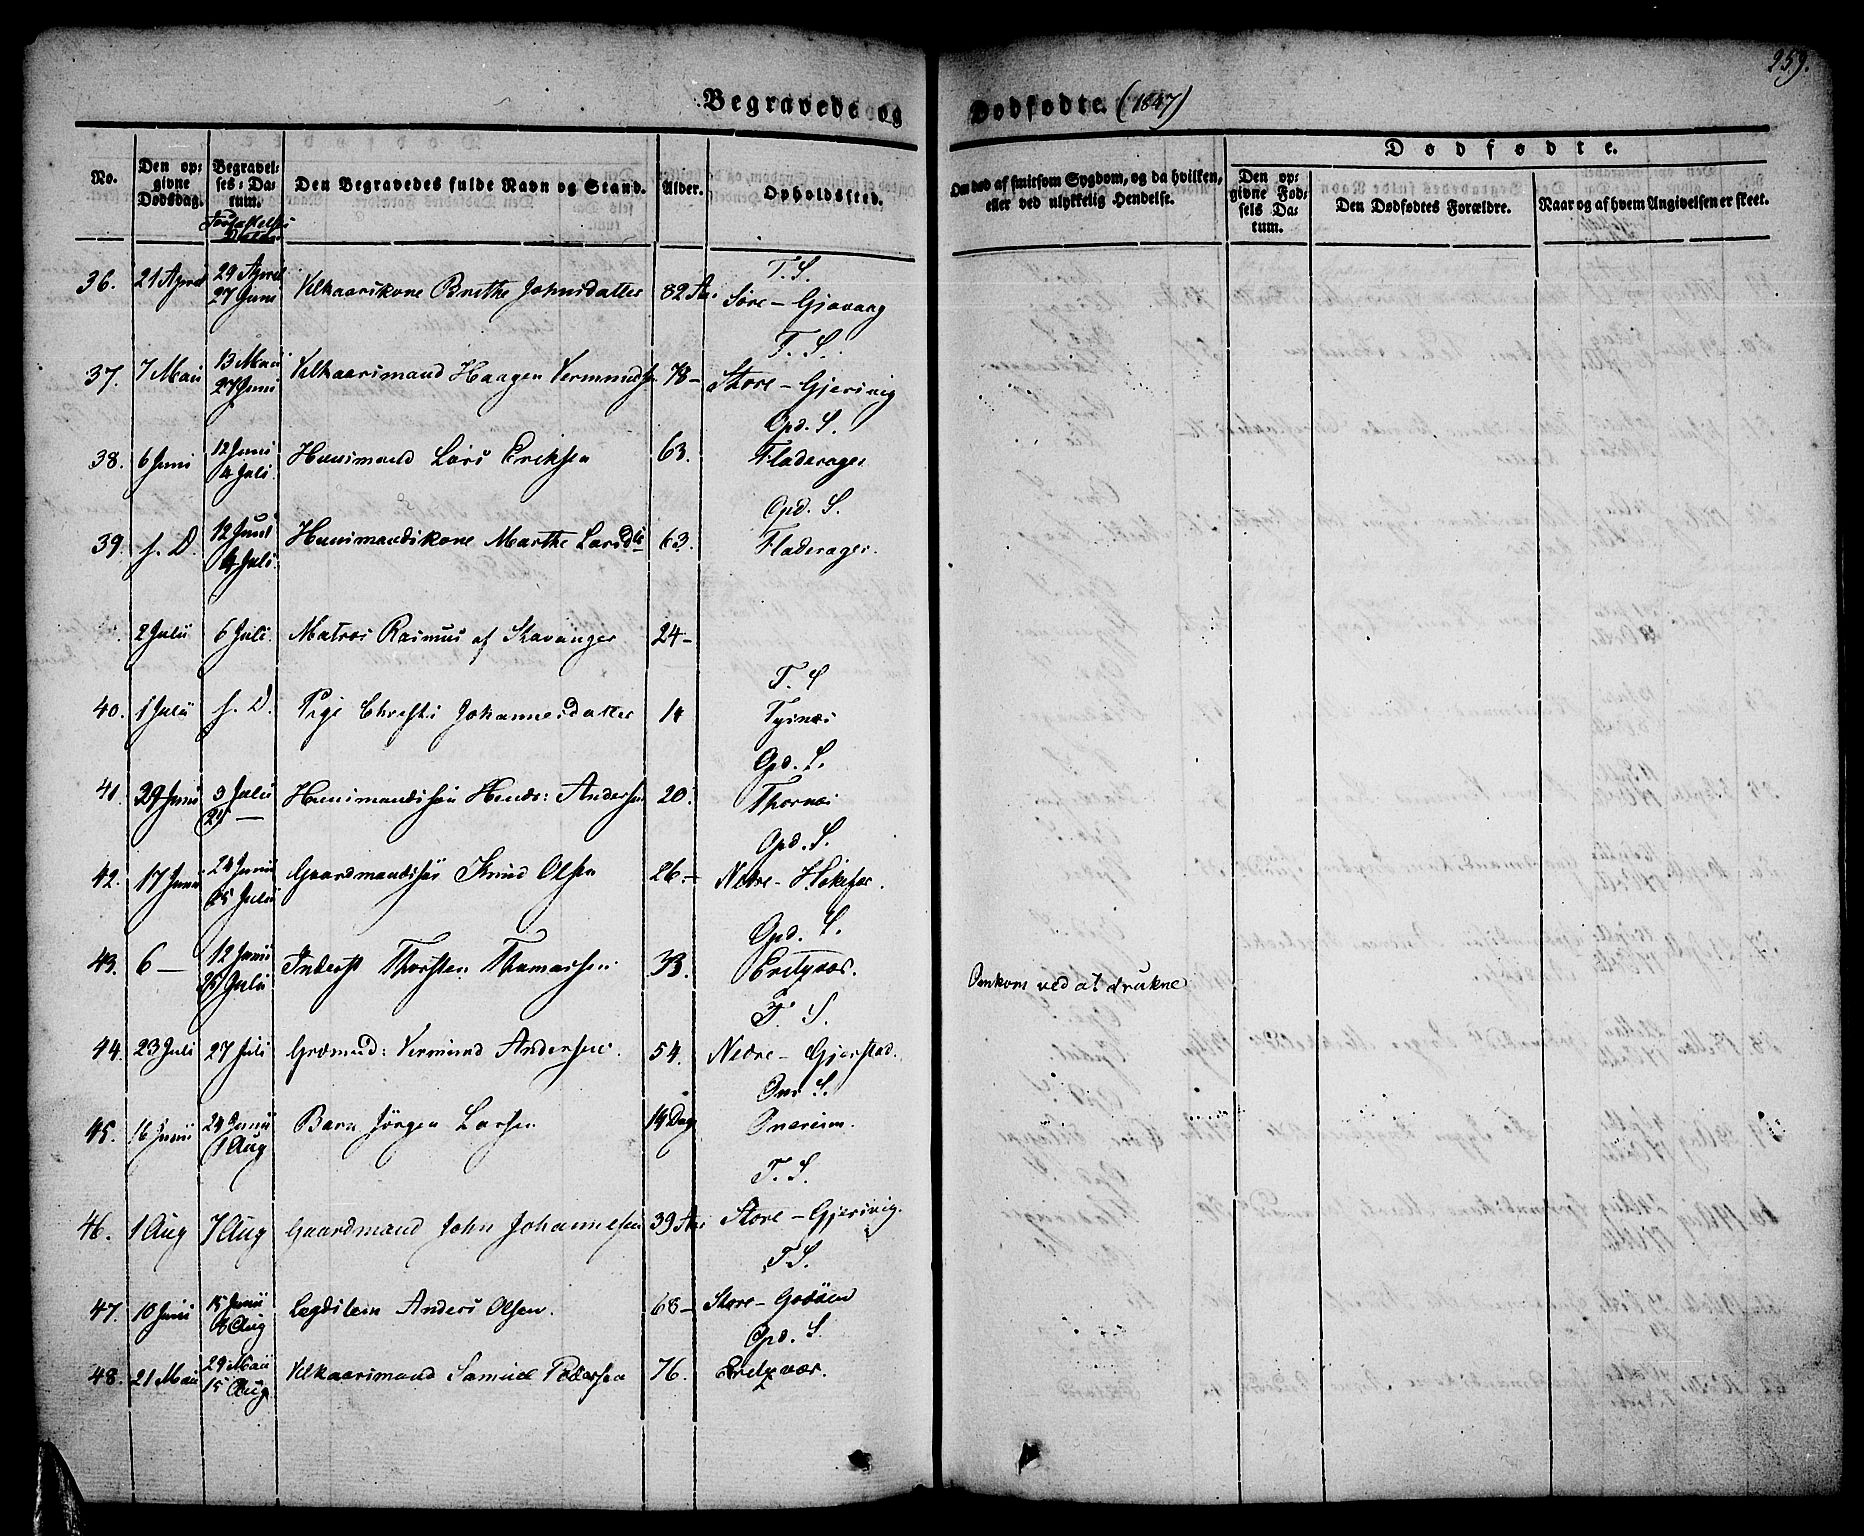 259.
Begravede og Dødfødte. (1847)
No.
Den opgivne Dødsdag.
Begravelses-Datum.
Den Begravedes fulde Navn og Stand.
Alder.
Opholdssted.
Om død af smitsom Sygdom, og da hvilken, eller ved ulykkelig Hendelse.
Dødfødte.
Den opgivne Fødsels Datum.
Den Dødfødtes Forældre.
Naar og af hvem Angivelsen er skeet.
T. S.
36. 21 April 29 April 27 Juni Velkaarskone Brithe Johnsdatter 82 Aar Søre-Gjøvaag
T. S.
37. 7 Maii 13 Maii 27 Juni Velkaarsmand Haagen Vermunds 78 - Store-Gjersvig
Opd. S.
38. 6 Juni 12 Juni 4 Juli Huusmand Lars Eriksen 63. Fladerager
Opd. S.
39. s. D. 12 Juni 4 Juli Huusmandskone Marthe Larsdtr 63. Fladerager.
2 Julii 6 Juli. Matros Rasmus af Stavanger 24 -
T. S
40. 1 Julii s. D. Pige Christi Johannesdatter 14 Tysnæs
Opd. S.
41. 29 Junii 3 Julii 24 — Huusmandssøn Hendr: Andersen 20. Thornæs
Opd. S.
42. 17 Junii 24 Junii 25 Julii Gaardmandssøn Knud Olsen 26. - Nedre-
Opd. S.
43. 6 — 12 Junii 25 Julii Inderst Thorsten Thomassen. 33. Omkom ved at drukne
T. S.
44. 23 Juli 27 Juli Grdmnd: Vermund Andersen. 54. Nedre-Gjerstad.
S.
45. 16 Junii 24 Junii 1 Aug Barn Jørgen Larsen 14 Dag
T. S.
46. 1 Aug 7 Aug Gaardmand John Johannesen 39 Aar Store-Gjersvig.
T. S.
47. 10 Junii 15 Junii 8 Aug Legdslem Anders Olsen. 68 - Store-Godøen
Opd. S.
48. 21 Maii 29 Maii 15 Aug Velkaarsmand Samuel Pedersen 76.